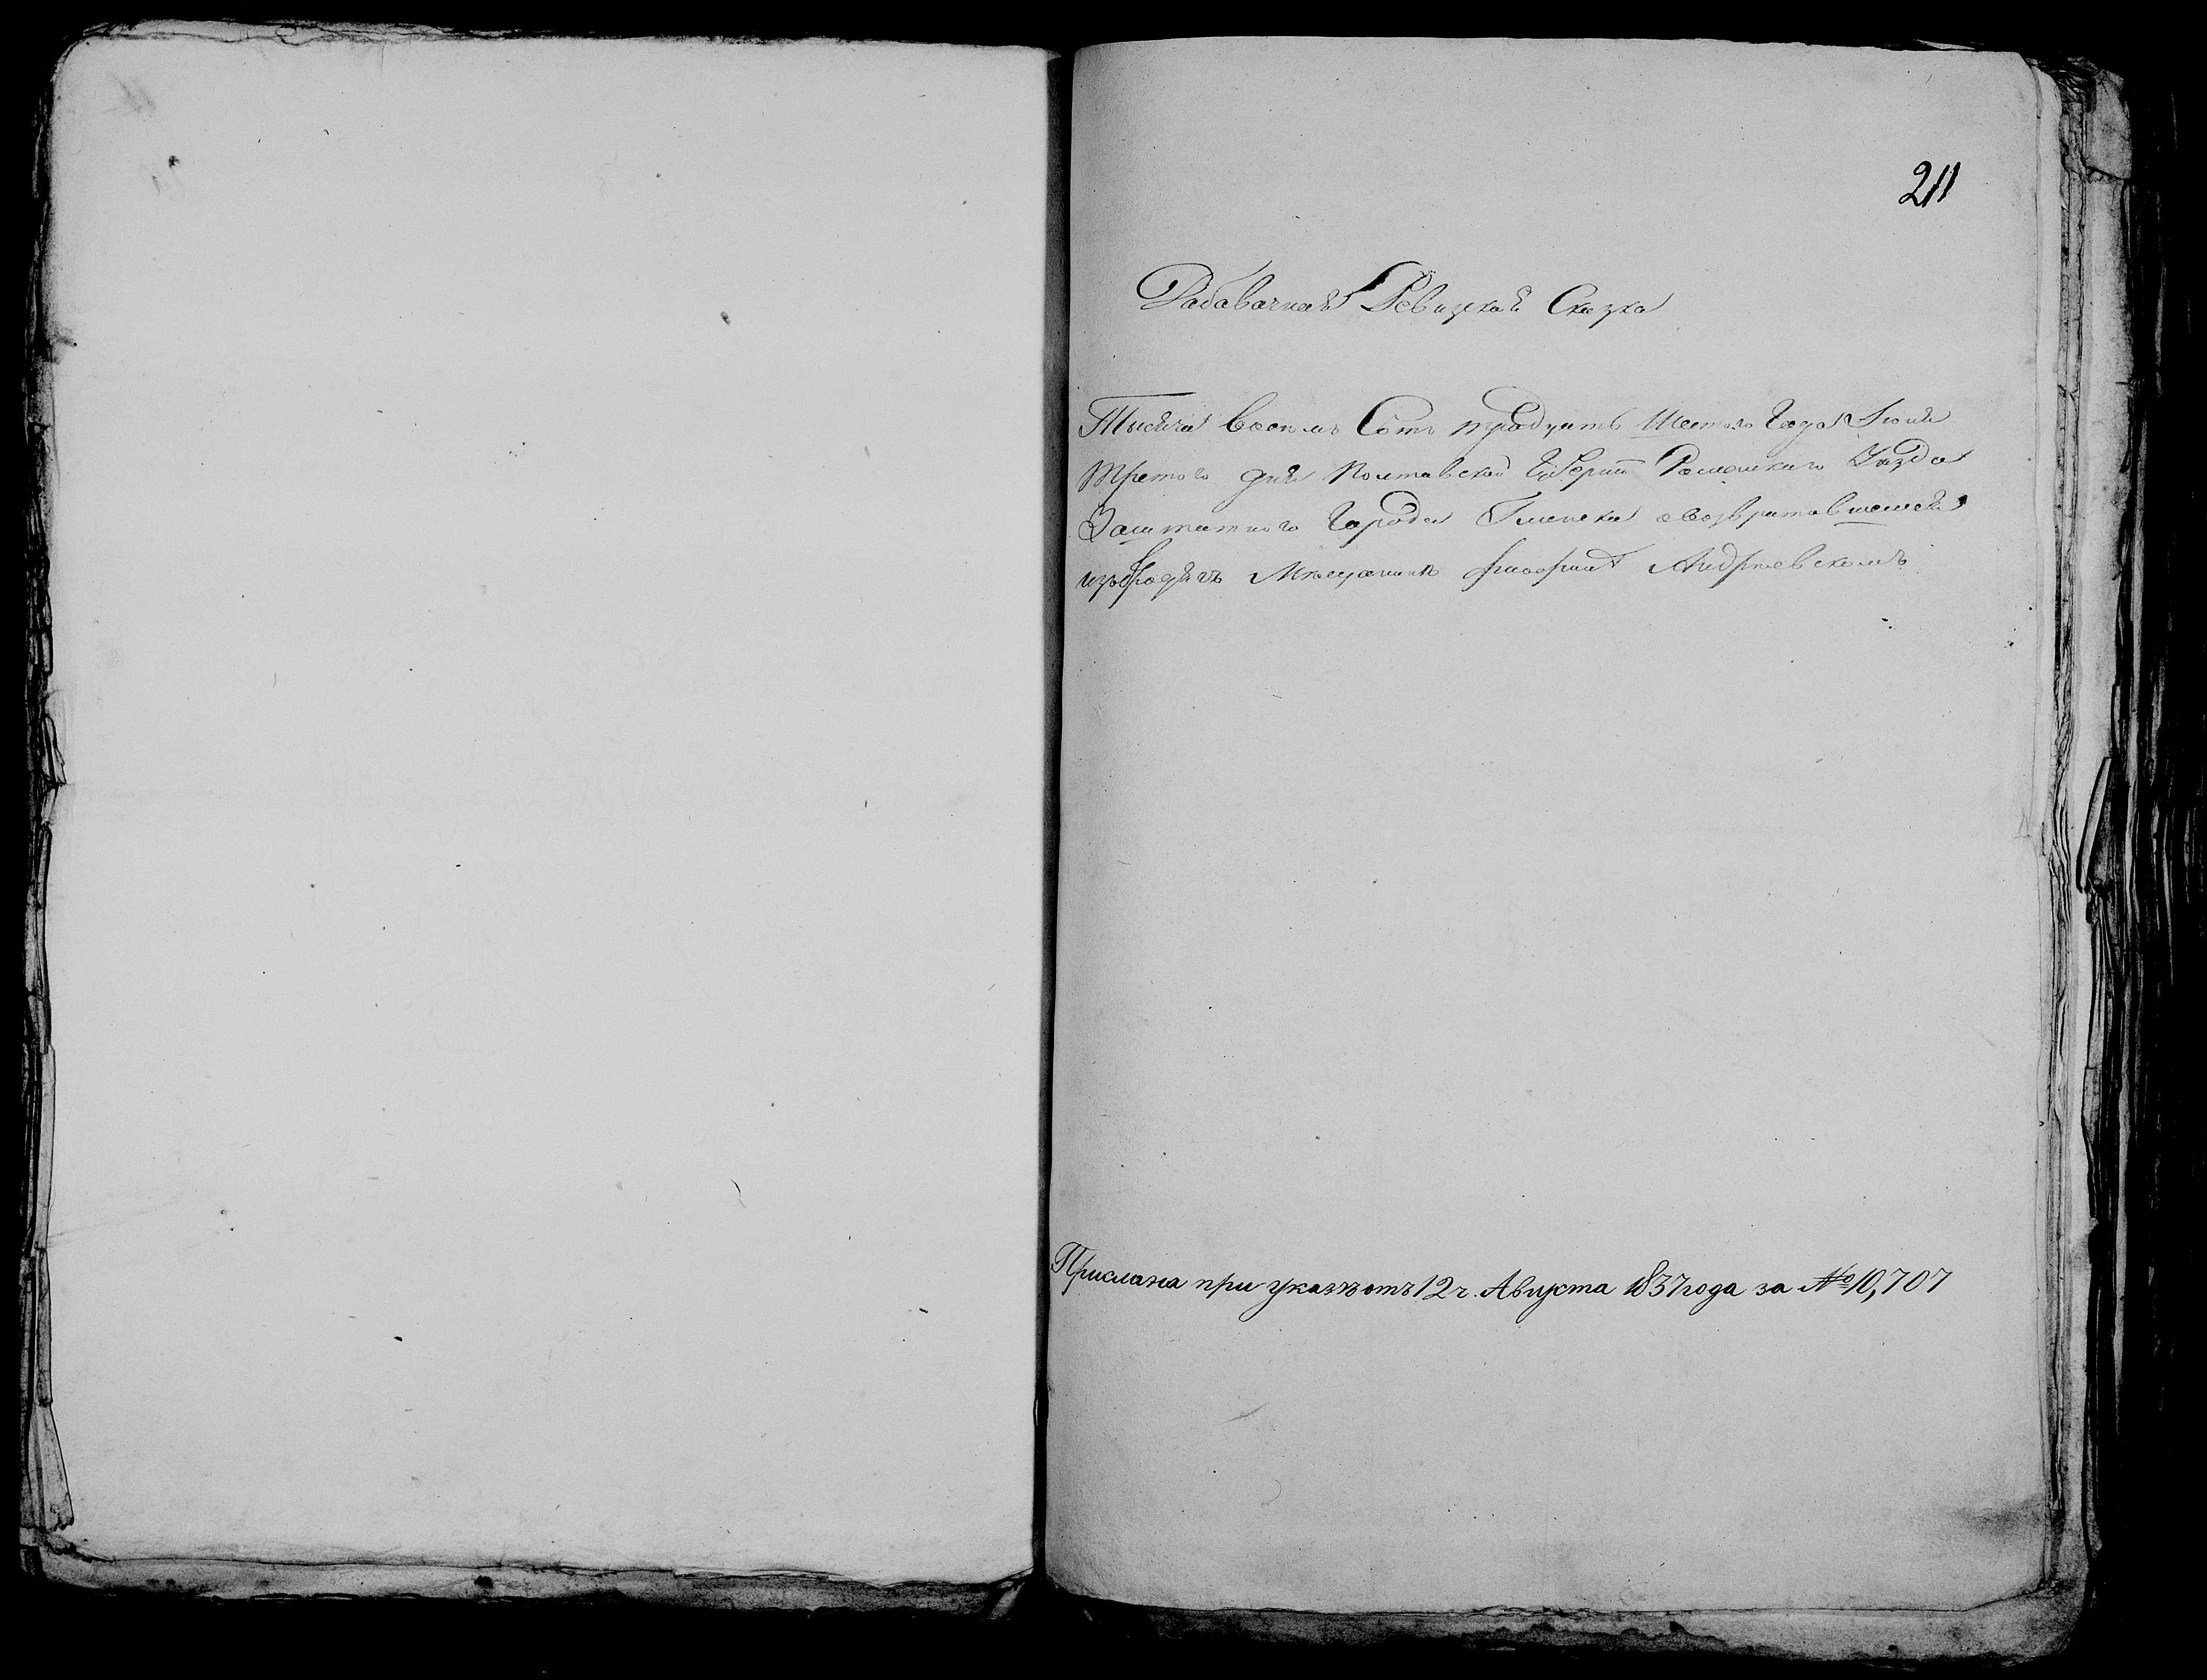 211
Дабавачная Ревизкая Сказка
Тысяча восемь Сотъ тридцать Шестого Года Июня
третого дня Полтавской Губернии Роменского Уезда
Заштатного Города Глинска овозвратовшемся
изъ бродягъ Мѣщанинѣ Андриевскомъ
Прислана при указѣ отъ 12 ч. Августа 1837 года за № 10,707